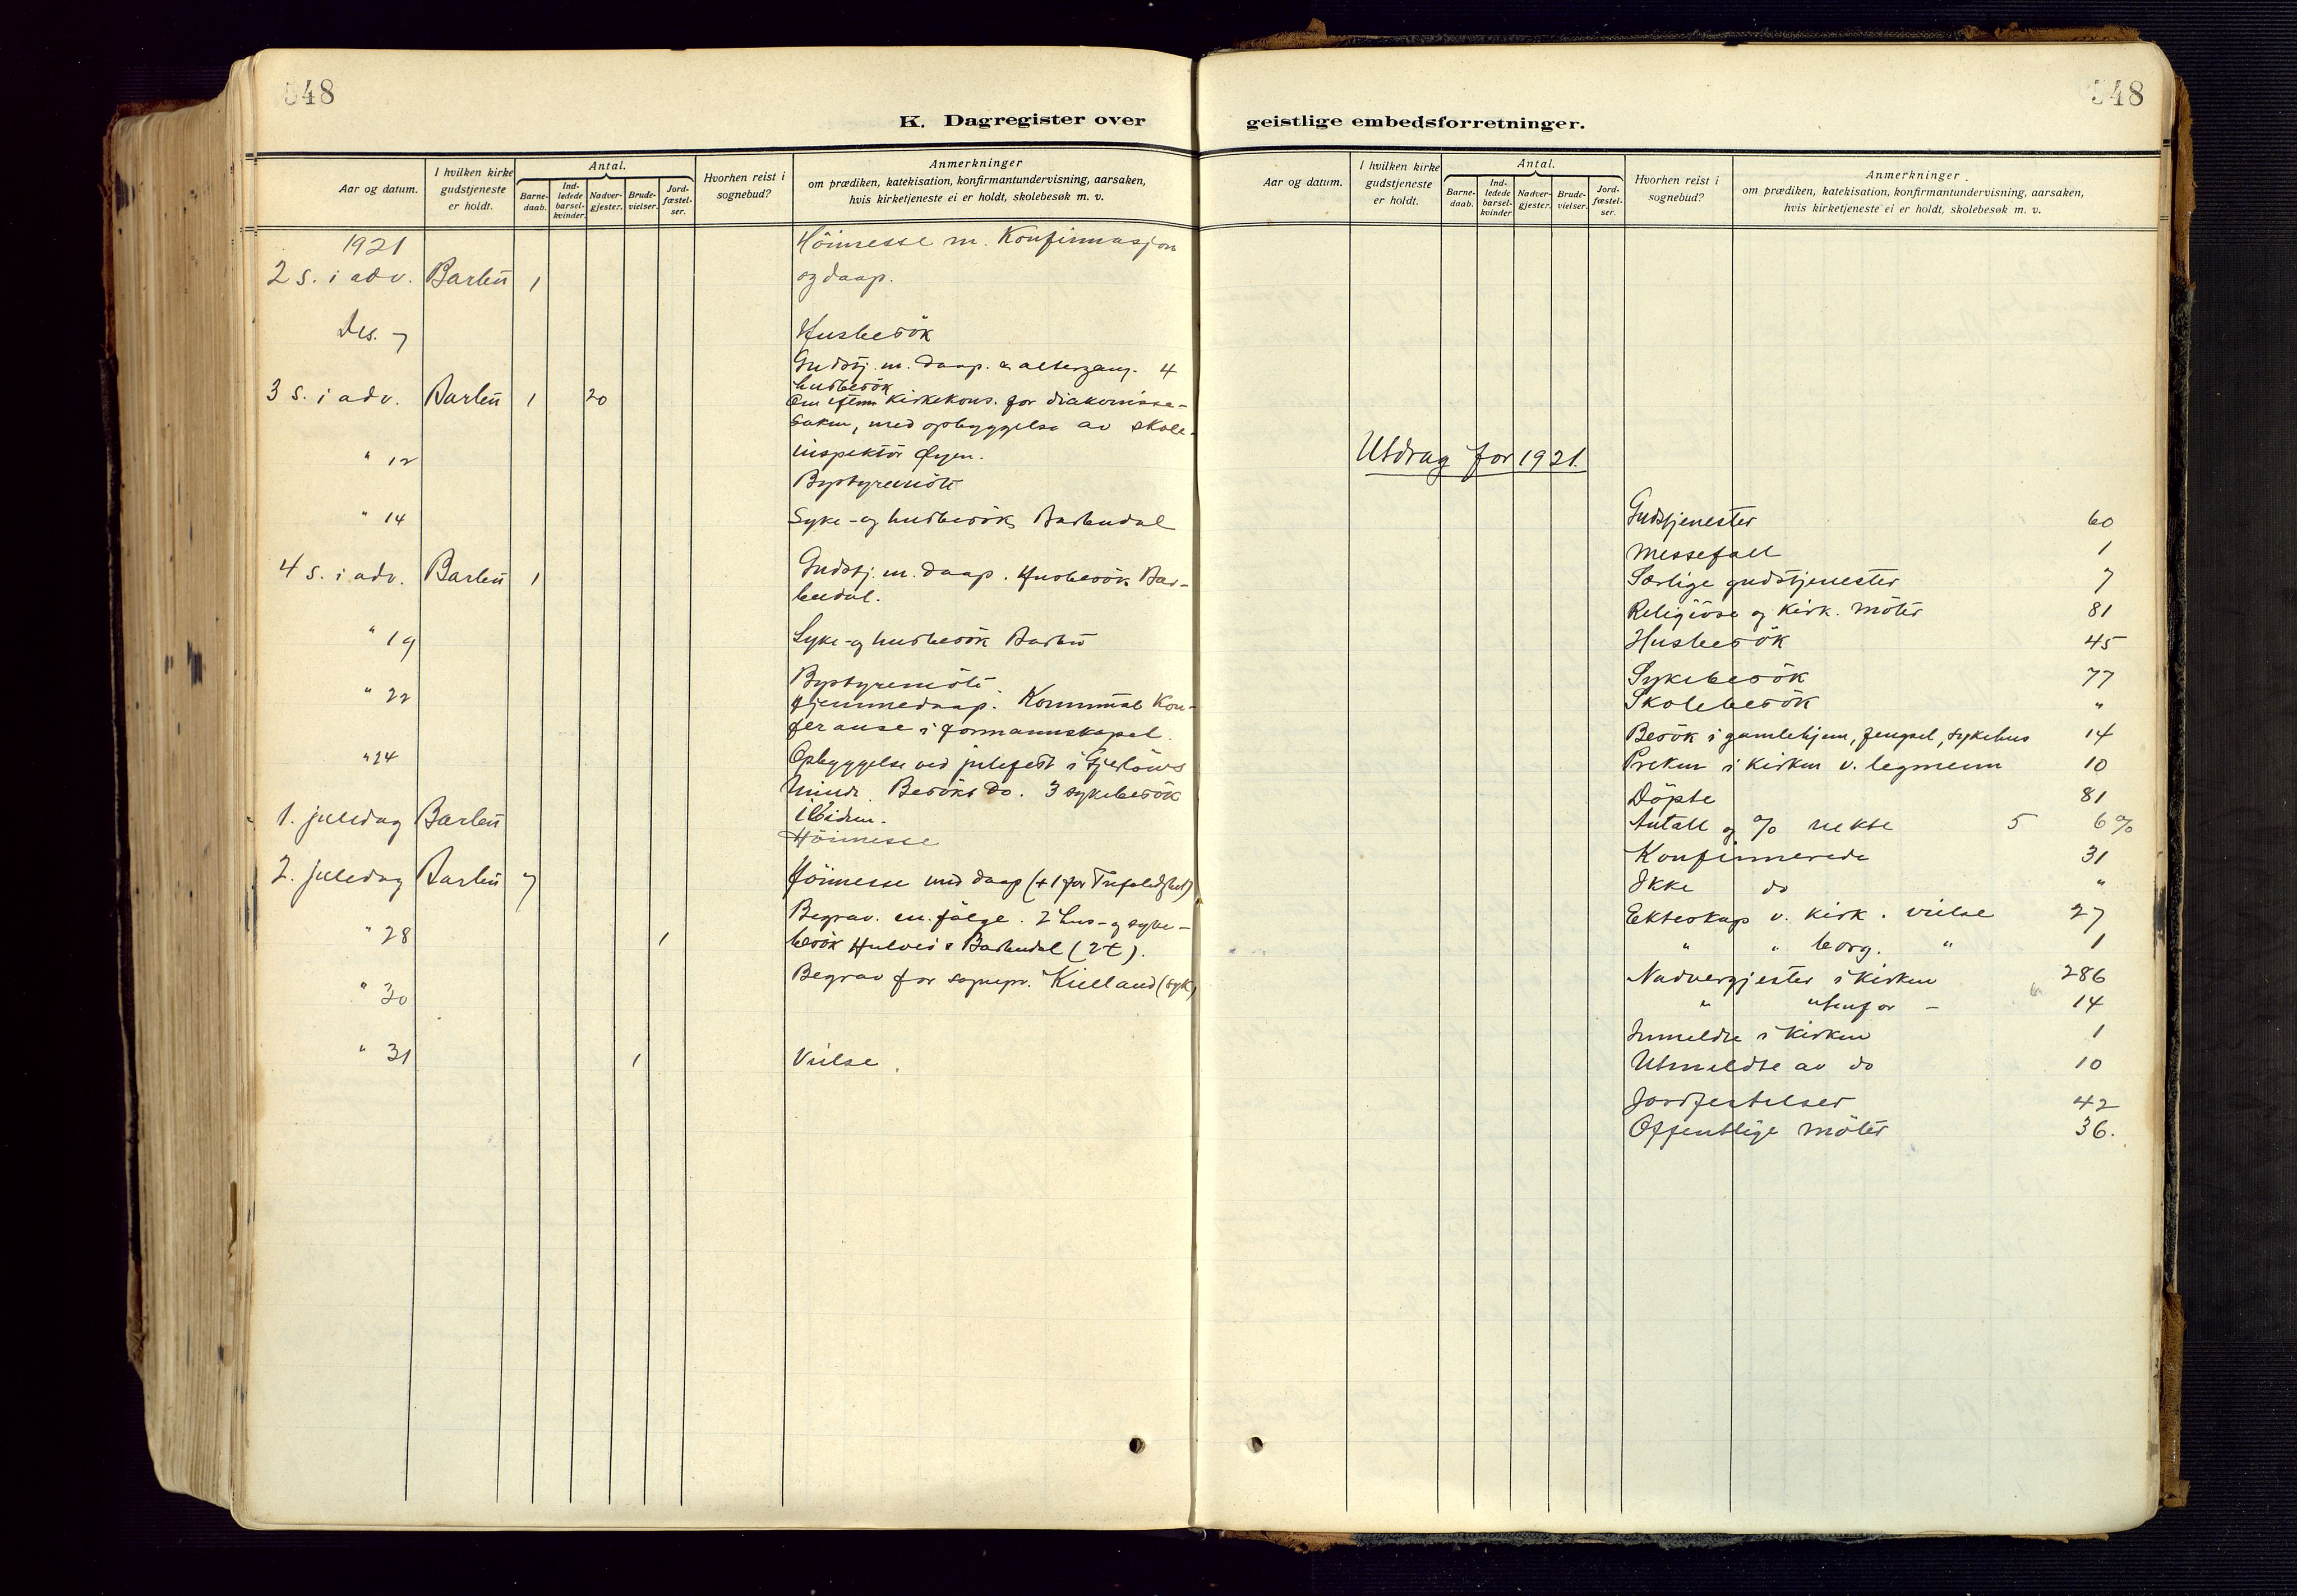 548
K. Dagregister over
Aar og datum.
I hvilken kirke gudstjeneste er holdt.
Antal.
Barne-daab.
Ind-ledede barsel-kvinder.
Nadver-gjester.
Brude-vielser.
Jord-fæstel-ser.
Hvorhen reist i sognebud?
Anmerkninger
om prædiken, katekisation, konfirmantundervisning, aarsaken,
hvis kirketjeneste ei er holdt, skolebesøk m. v.
1921 Höimesse m. Konfirmasjon
2 s. i adv. Barbu 1 og daap.
Des. 7 Husbesök
Gudstj. m. daap. & altergang. 4
husbesök
3 s. i adv. Barbu 1 20 Om eftm Kirkekons. for diakonisse-
saken, med opbyggelse av skole-
" 12 inspektör Öyen.
Bystyremöte
" 14 Syke- og husbesök Barbudal
4 s. i adv. Barbu 1 Gudstj. m. daap. Husbesök Bar-
budal.
" 19 Syke- og husbesök Barbu
Bystyremöte
" 22 Hjemmedaap. Kommunal Kon-
feranse i formannskapet.
" 24 Opbyggelse ved julefest i
Minde. Besökt do. 3 sykebesök
1. juledag Barbu ibidem.
Höimesse
2. juledag Barbu 7 Höimesse med daap (+1 for Trefoldighet)
Begrav. m. fölge. 2 hus- og syke-
" 28 1 besök & Barbudal (2t).
" 30 Begrav for sognepr. Kielland (syk)
" 31 1 Vielse.
548
geistlige embedsforretninger.
Aar og datum.
I hvilken kirke gudstjeneste er holdt.
Antal.
Barne-daab.
Ind-ledede barsel-kvinder
Nadver-gjester.
Brude-vielser.
Jord-fæstel-ser.
Hvorhen reist i sognebud?
Anmerkninger.
om prædiken, katekisation, konfirmantundervisning, aarsaken,
hvis kirketjeneste ei er holdt, skolebesøk m. v.
Utdrag for 1921.
Gudstjenester 60
Messefall 1
Særlige gudstjenester 7
Religiöse og Kirk. möter 81
Husbesök 45
Sykebesök 77
Skolebesök "
Besök i gamlehjem, fengsel, sykehus 14
Preken i Kirken v. legmenn 10
Döpte 81
Antall og % uekte 5 6%
Konfirmerede 31
Ikke do "
Ekteskap v. kirk. vielse 27
" " borg. " 1
Nadvergjester i Kirken 286
" utenfor - 14
Innmeldte i Kirken 1
Utmeldte av do 10
Jordfestelser 42
Offentlige möter 36.